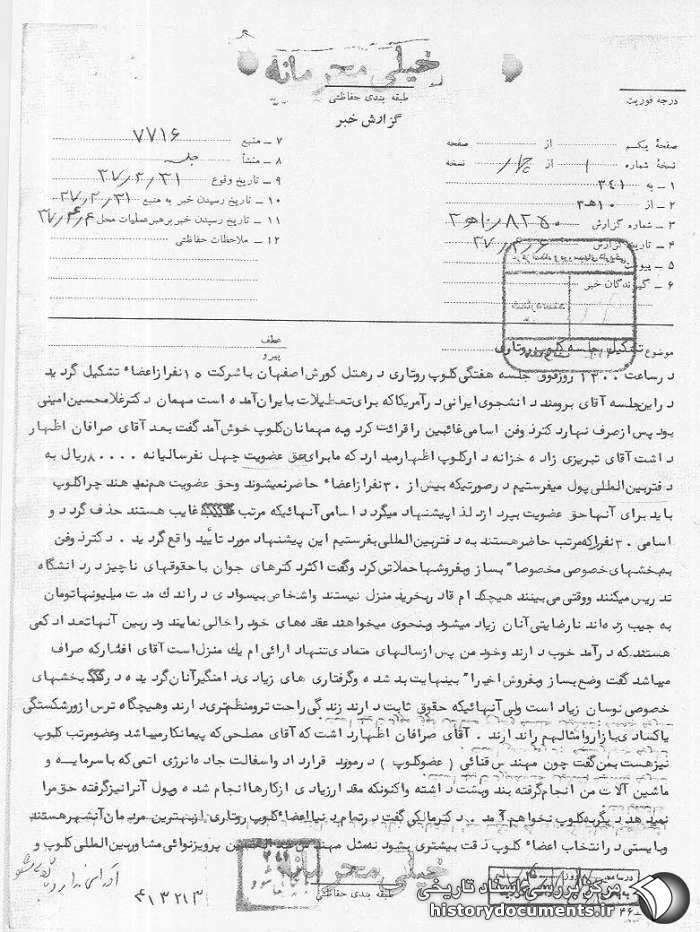 خیلی محرمانه
طبقه بندی حفاظتی
گزارش خبر
درجه فوریت
صفحهٔ یکم از صفحه
نسخهٔ شماره ۱ از نسخه
۱ ـ به ۳۴۱
۲ ـ از ۱۰هـ۳
۳ ـ شماره گزارش
۴ ـ تاریخ گزارش
۵ ـ پیوست
۶ ـ گیرندگان خبر
۷ ـ منبع ۷۷۱۶
۸ ـ منشأ جلسه
۹ ـ تاریخ وقوع ۳۷/۲/۳۱
۱۰ ـ تاریخ رسیدن خبر به منبع ۳۷/۲/۳۱
۱۱ ـ تاریخ رسیدن خبر برهبر عملیات محل
۱۲ ـ ملاحظات حفاظتی
موضوع تشکیل جلسه کلوپ روتاری
عطف
پیرو
درساعت ۱۳۰۰ روزفوق جلسه هفتگی کلوپ روتاری درهتل کورش اصفهان باشرکت ۱۵ نفرازاعضاء تشکیل گردید
دراین جلسه آقای برومند دانشجوی ایرانی درآمریکاکه برای تعطیلات بایران آمده است مهمان دکترغلامحسین امینی
بود پس ازصرف نهار دکترذوفن اسامی غائبین راقرائت کرد وبه مهمانان کلوپ خوش آمد گفت بعد آقای صرافان اظهار
داشت آقای تبریزی زاده خزانه دارکلوپ اظهارمیدارد که مابرای حق عضویت چهل نفرسالیانه ۸۰۰۰۰ ریال به
دفتربین المللی پول میفرستیم درصورتیکه بیش از ۳۰ نفرازاعضاء حاضرنمیشوند وحق عضویت هم نمیدهند چراکلوپ
باید برای آنهاحق عضویت بپردازد لذا پیشنهاد میگردد اسامی آنهائیکه مرتب غایب هستند حذف گردد و
اسامی ۳۰ نفرراکه مرتب حاضرهستند به دفتربین المللی بفرستیم این پیشنهاد مورد تأیید واقع گردید . دکترذوفن
به بخشهای خصوصی مخصوصا" بسازوبفروشها حملاتی کرد وگفت اکثردکترهای جوان باحقوقهای ناچیز دردانشگاه
تدریس میکنند ووقتی می بینند هیچکدام قادربخرید منزل نیستند واشخاص بیسوادی دراندک مدت میلیونهاتومان
به جیب زده اند نارضایتی آنان زیاد میشود وبنحوی میخواهند عقده های خود راخالی نمایند ودربین آنهاتعداد کمی
هستند که درآمد خوب دارند وخود من پس ازسالهای متمادی تنها دارائی ام یک منزل است آقای افشارکه صراف
میباشد گفت وضع بسازوبفروش اخیرا" بینهایت بد شده وگرفتاری های زیادی دامنگیرآنان گردیده در بخشهای
خصوصی نوسان زیاد است ولی آنهائیکه حقوق ثابت دارند زندگی راحت ترومنظم تری دارند وهیچگاه ترس ازورشکستگی
یاکسادی بازاروامثالهم راندارند . آقای صرافان اظهارداشت که آقای مصلحی که پیمانکارمیباشد وعضومرتب کلوپ
نیزهست بمن گفت چون مهندس قنائی (عضوکلوپ ) درمورد قرارداد واسفالت جاده انرژی اتمی که باسرمایه و
ماشین آلات من انجام گرفته بند وبست داشته واکنونکه مقدارزیادی ازکارهاانجام شده وپول آنرانیزگرفته حق مرا
نمیدهد دیگربه کلوپ نخواهم آمد . دکترمالکی گفت درتمام دنیا اعضاء کلوپ روتاری ازبهترین مردمان آنشهرهستند
وبایستی درانتخاب اعضاء کلوپ دقت بیشتری بشود نه مثل مهندس پرویزنوائی مشاوربین المللی کلوپ و
خیلی محرمانه
طبقه بندی حفاظتی
۴۱۳۲۱۳
مرکز بررسی اسناد تاریخی
historydocuments.ir